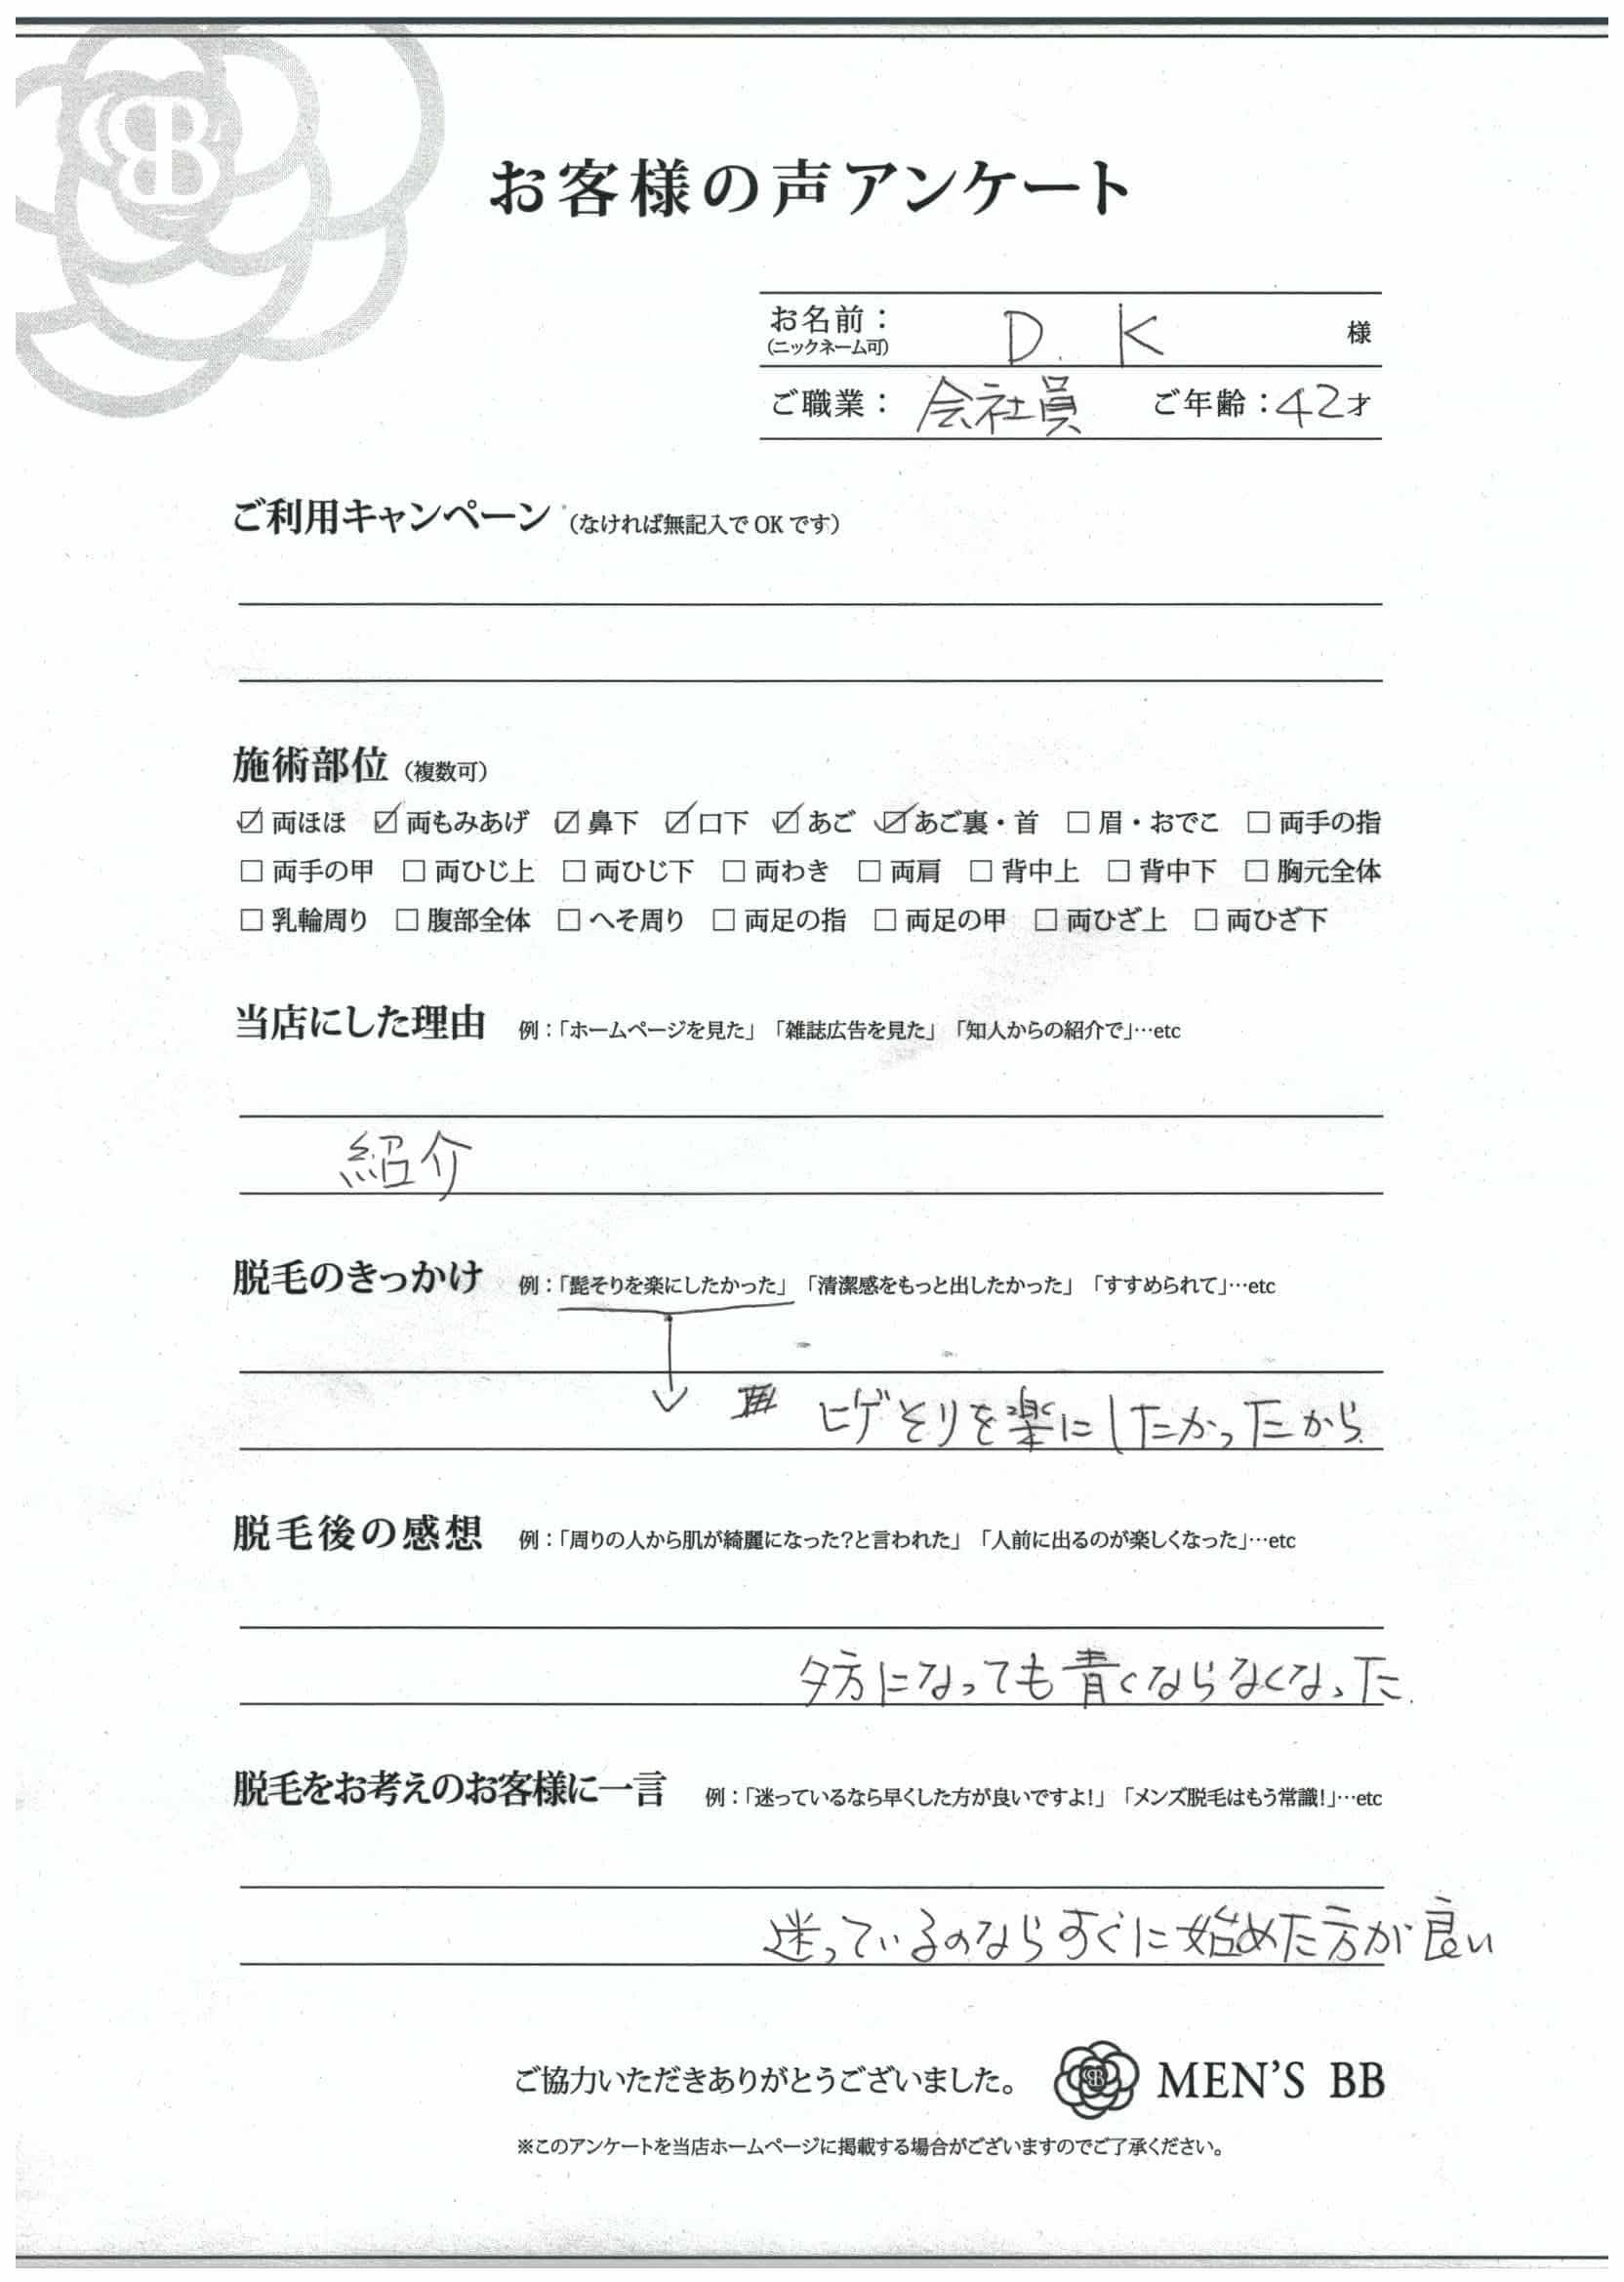 お客様の声アンケート
お名前： D. K 様
(ニックネーム可)
ご職業： 会社員 ご年齢：42才
ご利用キャンペーン（なければ無記入でOKです）
施術部位（複数可）
☑ 両ほほ ☑ 両もみあげ ☑ 鼻下 ☑ 口下 ☑ あご ☑ あご裏・首 □ 眉・おでこ □ 両手の指
□ 両手の甲 □ 両ひじ上 □ 両ひじ下 □ 両わき □ 両肩 □ 背中上 □ 背中下 □ 胸元全体
□ 乳輪周り □ 腹部全体 □ へそ周り □ 両足の指 □ 両足の甲 □ 両ひざ上 □ 両ひざ下
当店にした理由 例：「ホームページを見た」「雑誌広告を見た」「知人からの紹介で」…etc
紹介
脱毛のきっかけ 例：「髭そりを楽にしたかった」「清潔感をもっと出したかった」「すすめられて」…etc
ヒゲそりを楽にしたかったから
脱毛後の感想 例：「周りの人から肌が綺麗になった?と言われた」「人前に出るのが楽しくなった」…etc
夕方になっても青くならなくなった.
脱毛をお考えのお客様に一言 例：「迷っているなら早くした方が良いですよ!」「メンズ脱毛はもう常識!」…etc
迷っているのならすぐに始めた方が良い
ご協力いただきありがとうございました。 MEN'S BB
※このアンケートを当店ホームページに掲載する場合がございますのでご了承ください。